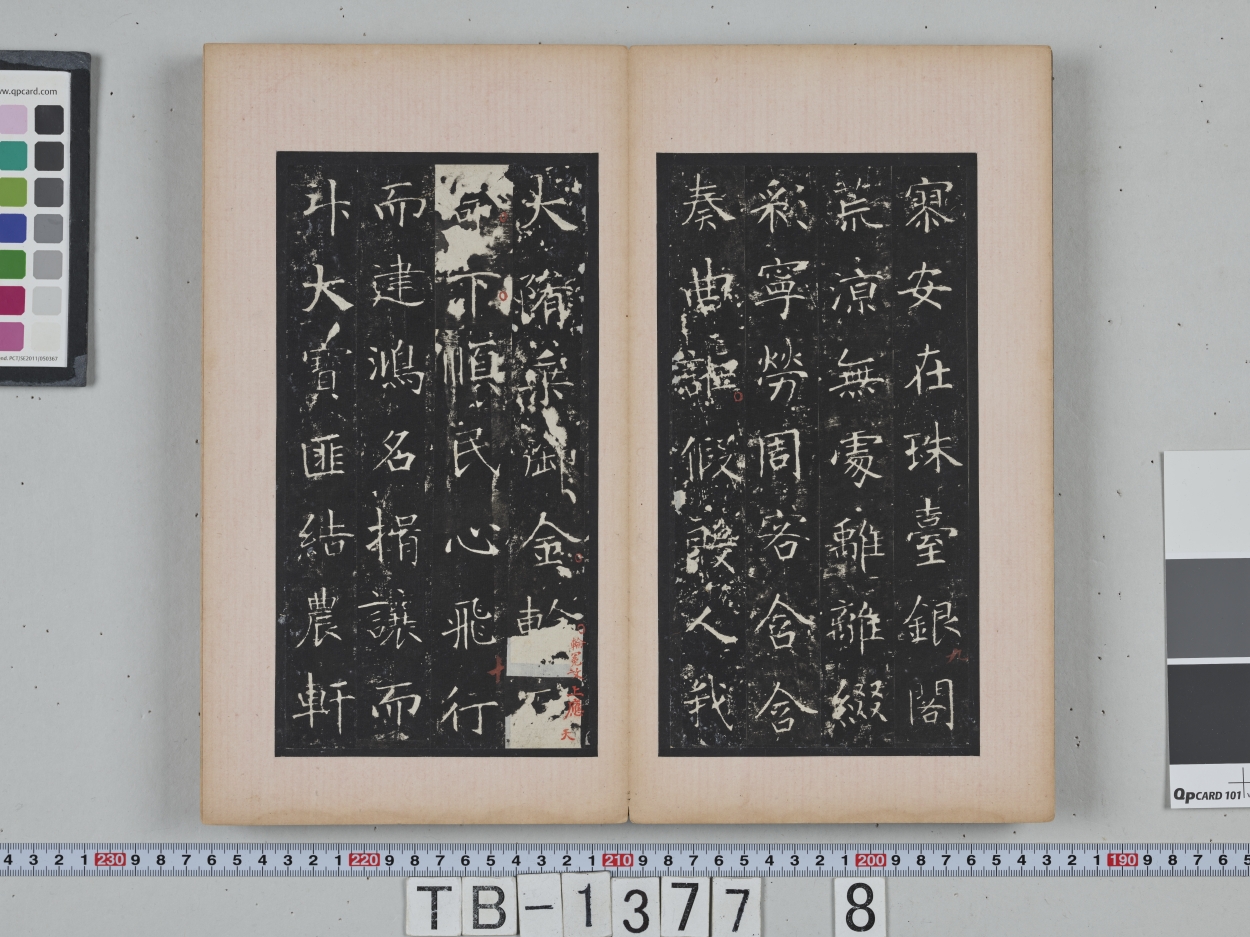 安在珠臺銀閣
荒涼無處離離綴
彩寧勞周客含含
奏曲詎假人我
大隋御金
命下順民心飛行
而建鴻名揖讓而
升大寶匪結農軒
九
十
上應
天
www.qpcard.com
QpCARD 101
4 3 2 1 230 9 8 7 6 5 4 3 2 1 220 9 8 7 6 5 4 3 2 1 210 9 8 7 6 5 4 3 2 1 200 9 8 7 6 5 4 3 2 1 190 9 8 7 6 5
TB-1377 8